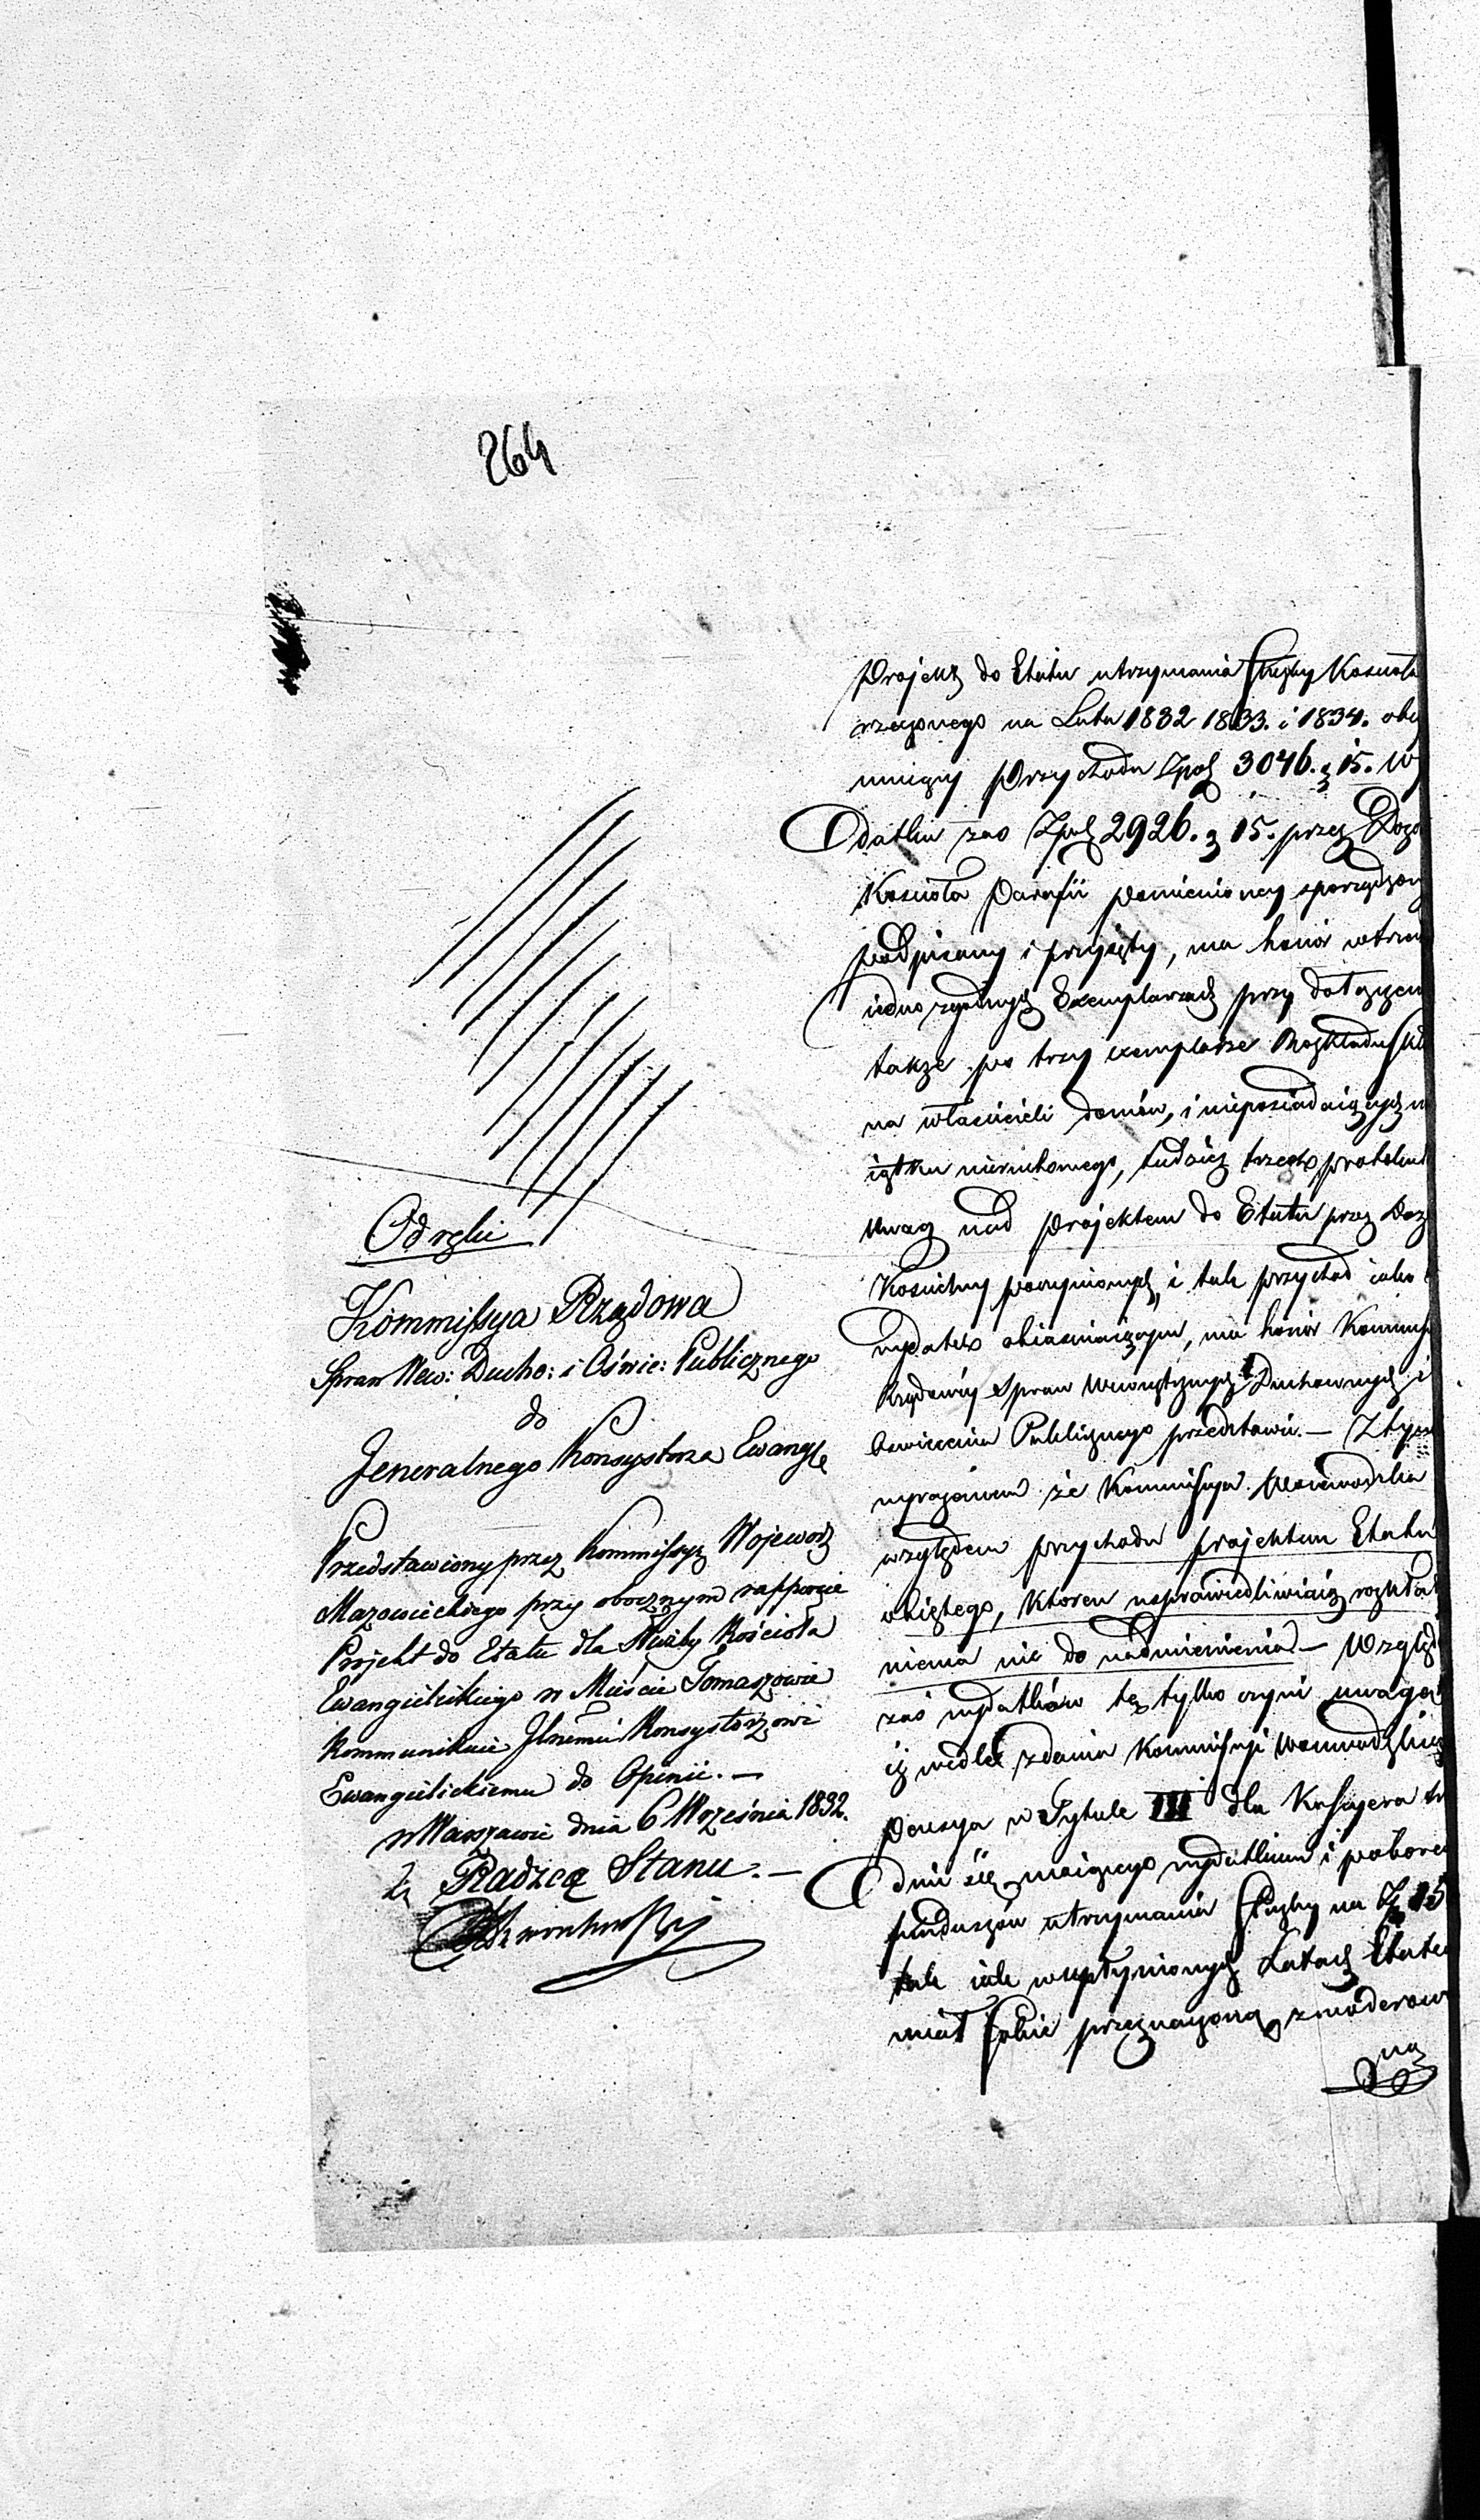 264
Odręlic
Kommissya Rządowa
Spraw Wew: Ducho: i Oświe: Publicznego
do
Jeneralnego Konsystorza Ewangie
Przedstawiony przez Kommissyą Wojewodz
Mazowieckiego przy obocznym rapporcie
Projekt do Etatu dla Służby Kościoła
Ewangielickiego w Mieście Tomaszowie
kommunikuie Jlnemu Konsystorzowi
Ewangielickiemu do Opinii. —
w Warszawie dnia 6 Września 1832.
Radzca Stanu. —
Projekt do Etatu utrzymania Służby Kościoła
rzeczonego na Lata 1832 1833. i 1834. obej
muiący Przychodu Zpol 3046. g 15. Wy
datku zas Zpol 2926. g 15. przez Dozo
Kościoła Parafii pomienioney sporządzony
podpisany i przyięty, ma honor w trzech
iedno zgodnych Exemplarzach przy dołączeniu
także po trzy exemplarze Rozkładu Skł
na właścicieli domów, i nieposiadaiących ma
iątku nieruchomego, tudzież trzech protokuł
uwag nad Projektem do Etatu przez Doz
Kościelny poczynionych, i tak przychod iako
wydatek obiaśniaiącym, ma honor Kommiss
Rządowéy Spraw Wewnętrznych Duchownych i
Oświecenia Publicznego przedstawić. — Z tym
wyrażeniem że Kommissya Woiewodzka
względem przychodu projektem Etatu
obiętego, ktoren usprawiedliwiaią rozkład
niema nic do nadmienienia. — Względ
zaś wydatków tę tylko czyni uwagę
iż wedle zdania Kommissyi Woiewodzkiey
Pensya w Tytule III dla Kassyera tr
dnić się maiącego wydatkiem i poborem
funduszów utrzymania Służby na Zp 15
tak iak w upłynionych Latach Etate
miał sobie przeznaczoną, zmoderowa
ną